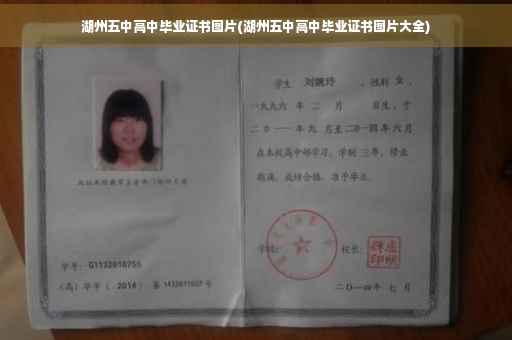 湖州五中高中毕业证书图片(湖州五中高中毕业证书图片大全)
学生 刘婉玲 ，性别 女 ，
一九九六 年 二 月 日生，于
二0一一 年 九 月至 二0一四 年 六 月
在本校高中部学习，学制 三 年，修业
期满，成绩合格，准予毕业。
学校： 校长：
学号： G1132010755
(高) 毕字 ( 2014 ) 第 1432011007 号
二〇一四年 七 月